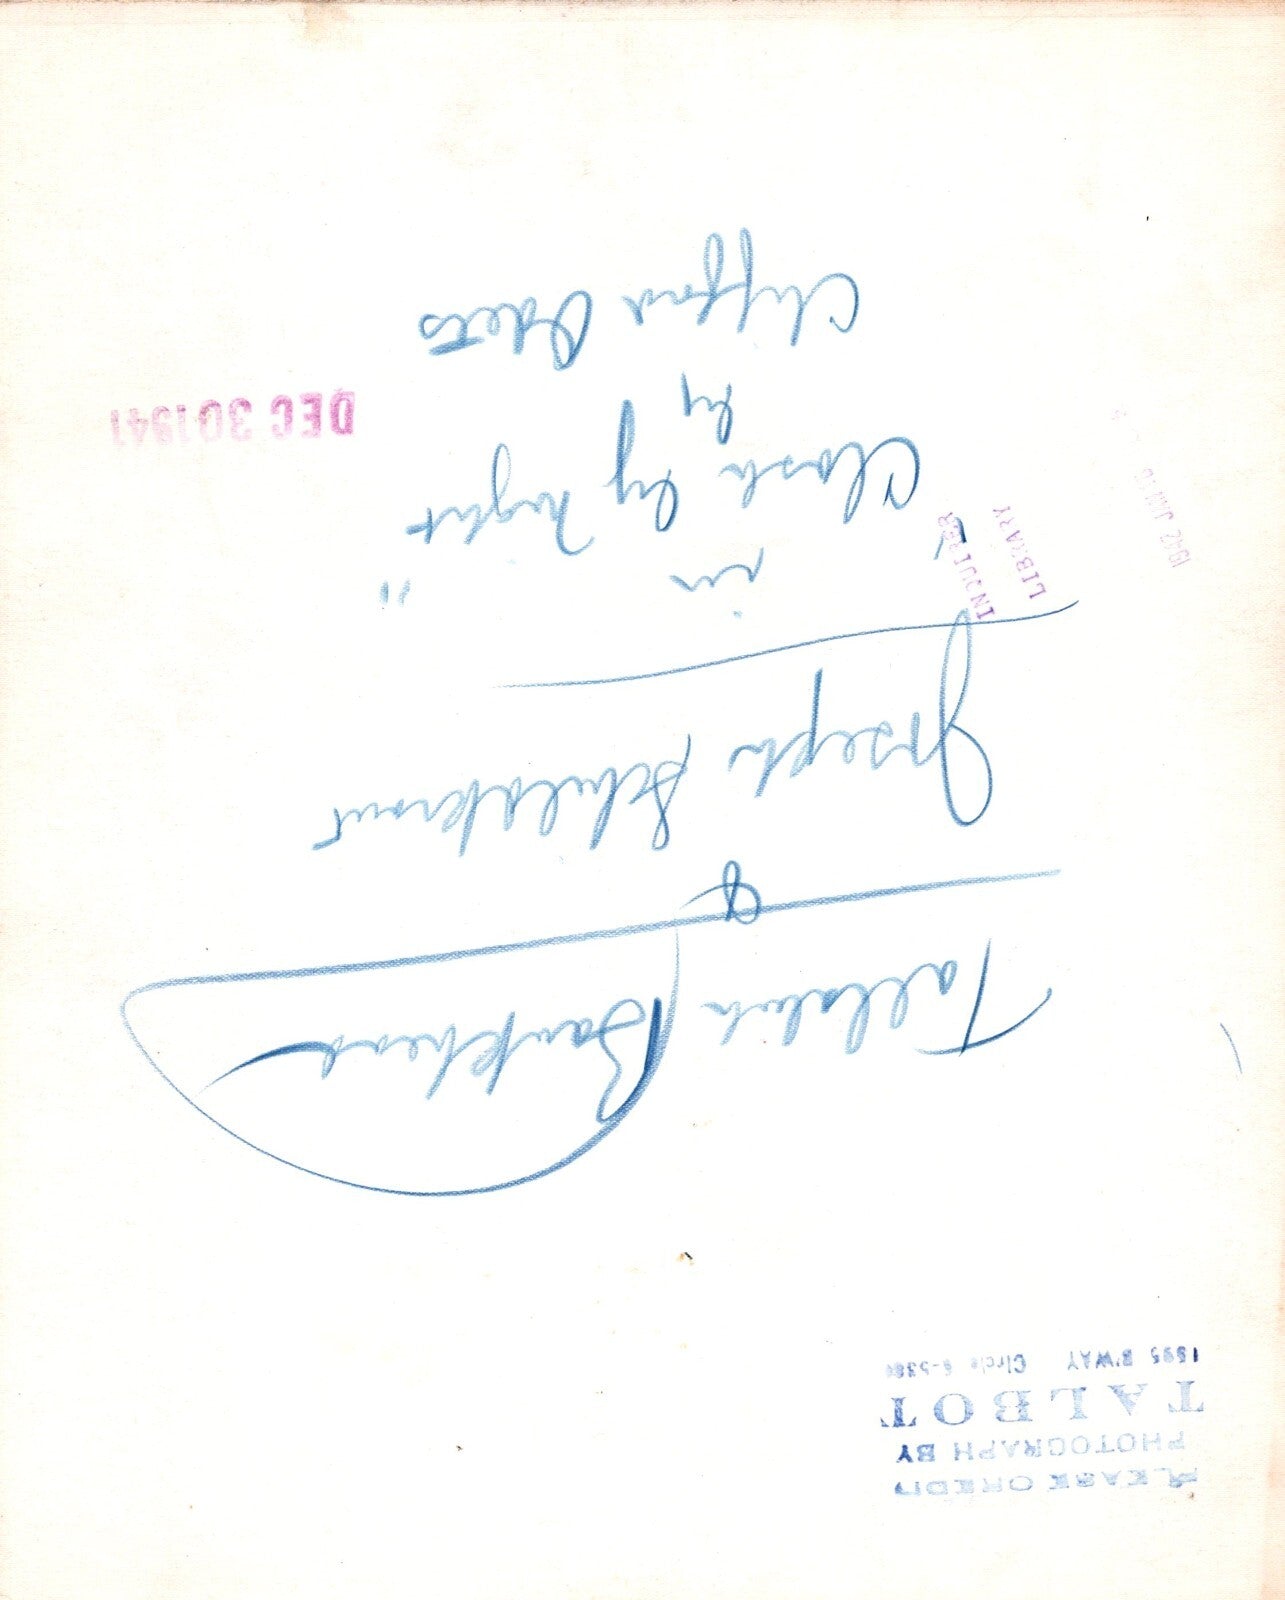 PLEASE CREDIT
PHOTOGRAPH BY
TALBOT
1595 B'WAY Circle 6-538
Tallulah Bankhead
&
Joseph Schildkraut
in
"Clash by Night"
by
Clifford Odets
INQUIRER
LIBRARY
1942 JAN 10
DEC 30 1941